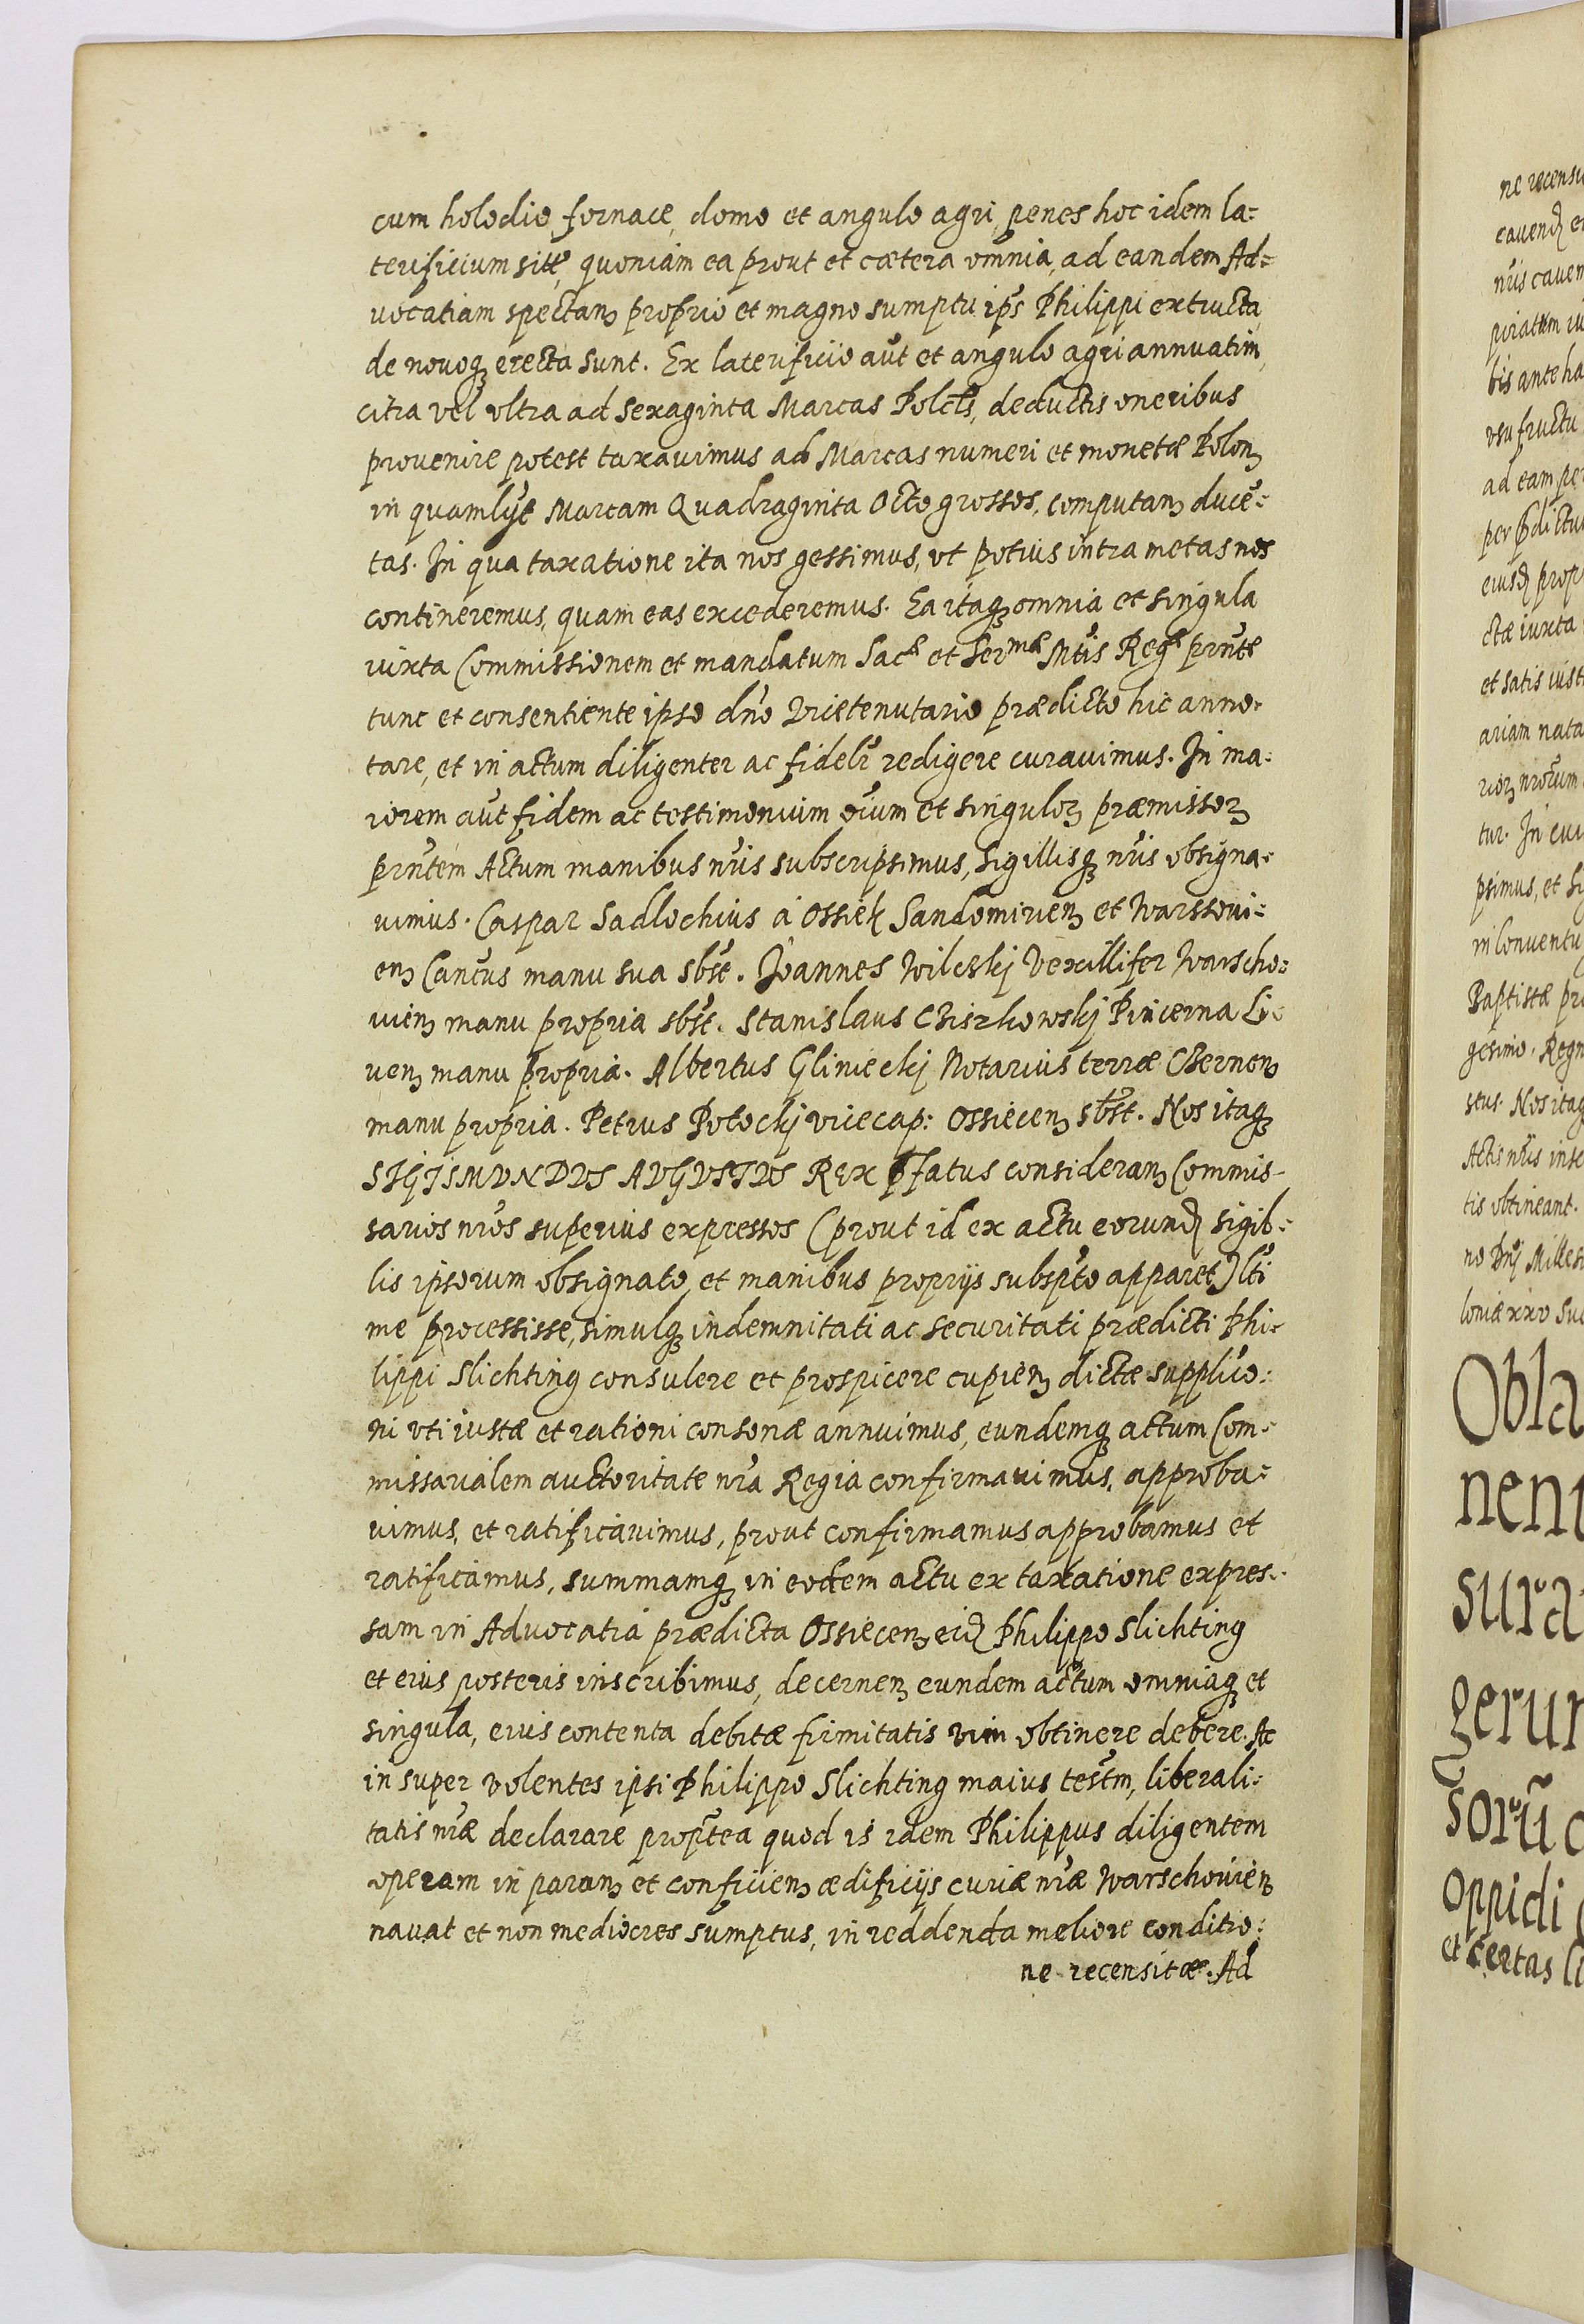 cum holodio, fornace, domo et angulo agri, penes hoc idem la=
terificium sitt̃, quoniam ea prout et cætera omnia, ad eandem Ad=
vocatiam spectanꝫ proprio et magno sumptu ip̃s Philippi extructa,
de novoqꝫ erecta sunt. Ex laterificio aũt et angulo agri annuatim,
citra vel vltra ad sexaginta Marcas Polcłs, deductis oneribus
provenire potest taxavimus ad Marcas numeri et monetæ Polonꝫ
in quamlỹt Marcam Quadraginta Octo grossos, computanꝫ duce=
tas. In qua taxatione ita nos gessimus, vt potius intra metas nos
contineremus, quam eas excederemus. Ea itaqꝫ omnia et singula
iuxta Commissionem et mandatum Sacæ et Serᵐᵃᵉ Mtĩs Regæ prñte
tunc et consentiente ipso dño Vicetenutario prædicto hic anno-
tare, et in actum diligenter ac fidelr̃ redigere curavimus. In ma=
iorem aũt fidem ac testimonium oĩum et singuloꝝ præmissoꝝ
prñtem Actum manibus nr̃is subscripsimus, Sigillisqꝫ nr̃is obsigna=
vimus. Caspar Sadlochius à Ossiek Sandomirienꝫ et Warssovi=
enꝫ Cancus manu sua sbst̃. Joannes Wilcskj Vexillifer Warscho=
vienꝫ manu propria sbst̃. Stanislaus Chiszkowskj Pincerna Li=
venꝫ manu propria. Albertus Glinieckj Notarius terræ Chernenꝫ
manu propria. Petrus Potockj vicecap: Ossiecenꝫ sbst̃. Nos itaqꝫ
SIGISMVNDVS AVGVSTVS REX p̃fatus consideranꝫ Commis-
sarios nr̃os superius expressos (prout id ex actu eorundꝫ sigil=
lis ipsorum obsignato, et manibus proprijs subsp̃to apparet) lt̃i
me processisse, simulqꝫ indemnitati ac securitati prædicti Phi-
lippi Slichting consulere et prospicere cupienꝫ dictæ supplic̃o=
ni vti iustæ et rationi consonæ annuimus, eundemqꝫ actum Com=
missarialem auctoritate nr̃a Regia confirmavimus, approba=
vimus, et ratificavimus, prout confirmamus approbamus et
ratificamus, summamqꝫ in eodem actu ex taxatione expres=
sam in Advocatia prædicta Ossiecenꝫ eidꝫ Philippo Slichting
et eius posteris inscribimus, decernenꝫ eundem actum omniaqꝫ et
singula, eius contenta debitæ firmitatis vim obtinere debere. Ac
in super volentes ipsi Philippo Slichting maius test̃m, liberali=
tatis nr̃æ declarare prop̃tea quod is idem Philippus diligentem
operam in paranꝫ et conficienꝫ ædificijs curiæ nr̃æ Warschovienꝫ
navat et non mediocres sumptus, in reddenda meliore conditio=
ne recensitæ. Ad
ne recensi
cavendꝫ e
nr̃is caven
poratum iu
bis ante ha
vsufructu
ad eam pe
per p̃dictu
eiusdꝫ prop
ctæ iuxta
et satis iust
ariam nata
tur. In cui
psimus, et Si
in Conventu
Baptistæ pr
gesimo. Regn
stus. Nos itaq
Actis nr̃is inse
tis obtineant.
no Dñj Milles
loniæ xxv Su
Obla
nent
sura
gerun
sorũ c
oppidi
et certas li